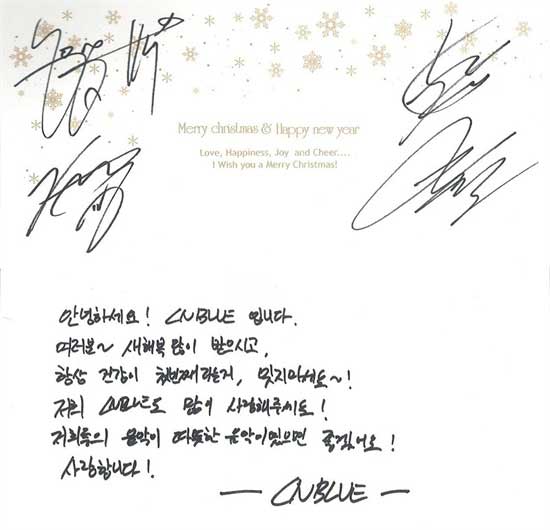 Merry christmas & Happy new year
Love, Happiness, Joy and Cheer....
I Wish you a Merry Christmas!
안녕하세요! CNBLUE 입니다.
여러분~ 새해복 많이 받으시고,
항상 건강이 첫번째라는거, 잊지마세요~!
저희 CNBLUE도 많이 사랑해주세요!
저희들의 음악이 따뜻한 음악이었으면 좋겠어요!
사랑합니다!
— CNBLUE —